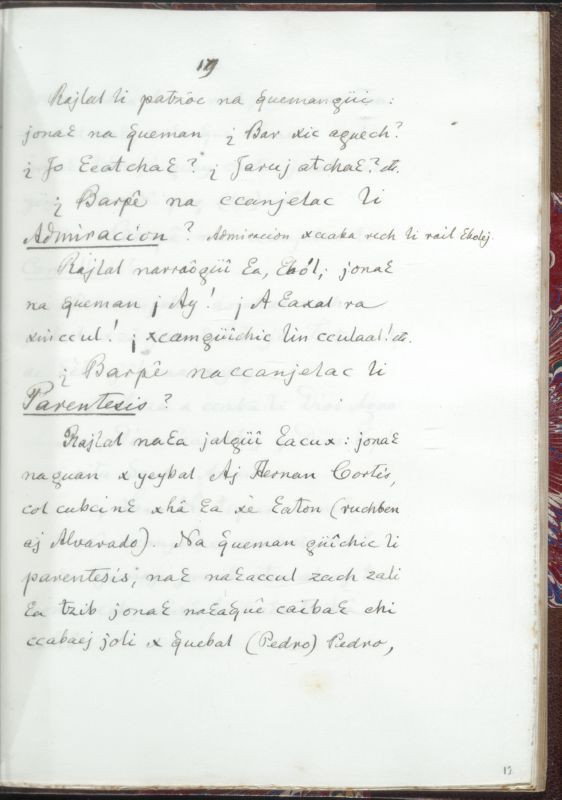 19
Rajlal li patrôc na quemangüi :
jonaɛ na queman ¿ Bar xic aguech?
¿ Jo ɛcatchaɛ? ¿ Jaruj atchaɛ? &.
¿ Barpê na ccanjelac li
Admiracion? Admiracion xccaba rech li rail ɛholéj.
Rajlal narraôgüi ɛa, ɛból; jonaɛ
na queman ¡ Ay! ¡ A ɛaxal ra
xinccul! ¡ xcamgüîchic lin cculaal! &.
¿ Barpê naccanjelac li
Parentesis?
Rajlal naɛa jalgüî ɛacux: jonaɛ
naguan x yeybal Aj Hernan Cortés,
col cubcinɛ xhâ ɛa xè ɛaton (ruchben
aj Alvarado). Na queman güîchic li
parentesis, naɛ naɛaccul zach zali
ɛa tzib jonaɛ naɛaquê caibaɛ chi
ccabaej joli x quebal (Pedro) Pedro,
12